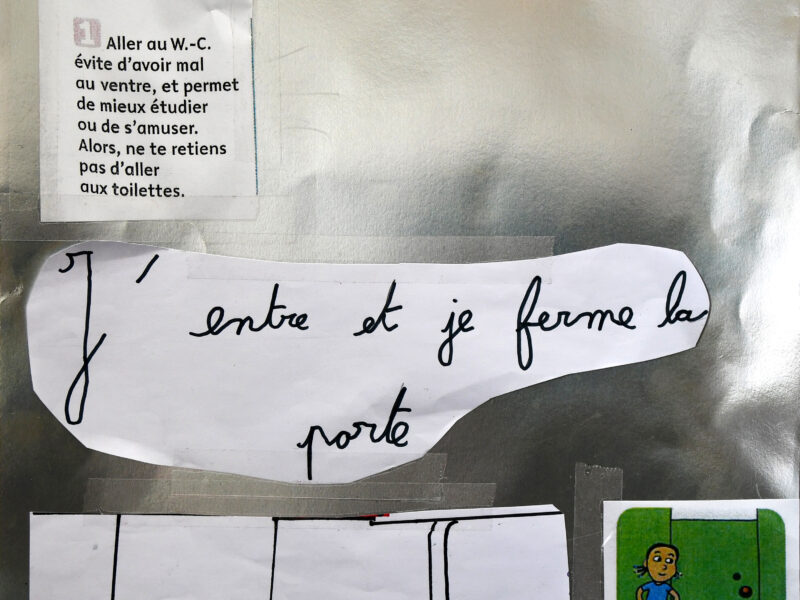 1 Aller au W.-C.
évite d'avoir mal
au ventre, et permet
de mieux étudier
ou de s'amuser.
Alors, ne te retiens
pas d'aller
aux toilettes.
J' entre et je ferme la
porte